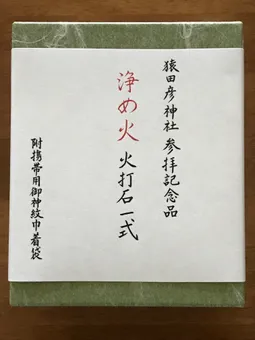 猿田彦神社 参拝記念品
浄め火 火打石一式
附携帯用御神紋巾着袋